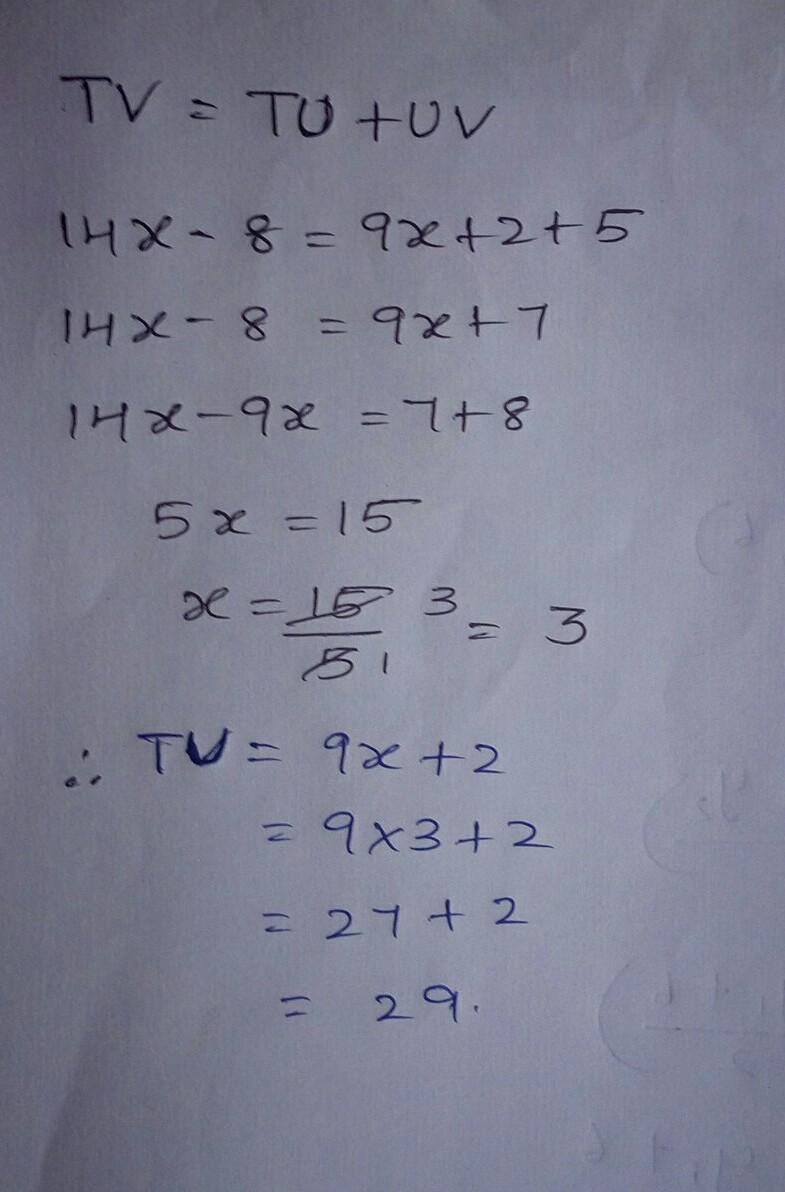 TV = TU + UV
14x - 8 = 9x + 2 + 5
14x - 8 = 9x + 7
14x - 9x = 7 + 8
5x = 15
x = 15/5 3/1 = 3
∴ TU = 9x + 2
= 9 × 3 + 2
= 27 + 2
= 29.